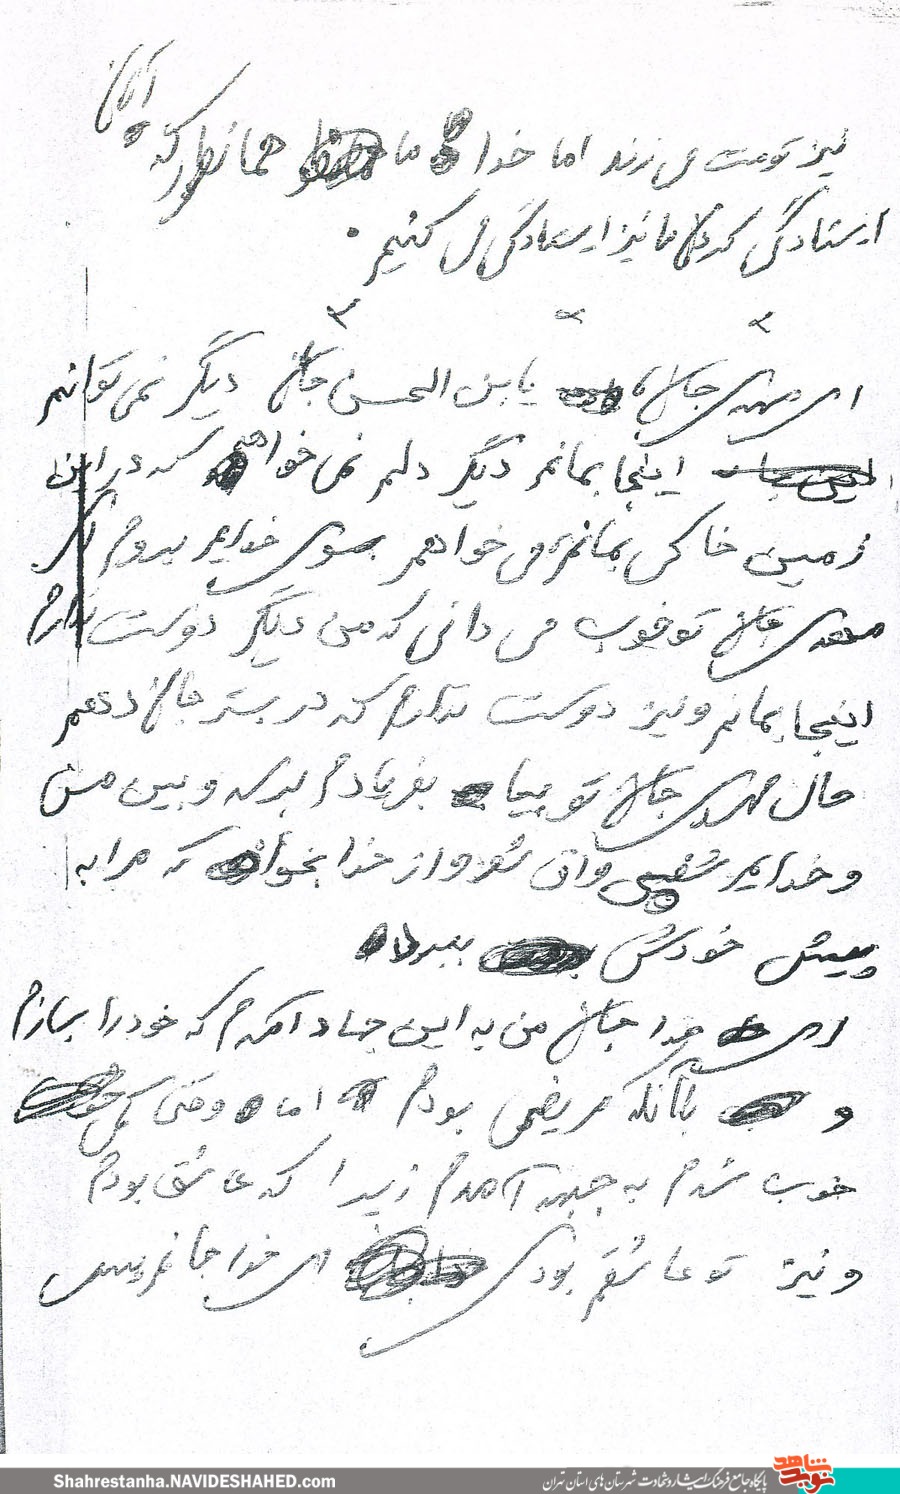 نیز تهمت می زنند اما خدا ما همانطور که آنان
ایستادگی کردند ما نیز ایستادگی می کنیم.
ای مهدی جان یابن الحسن جان دیگر نمی توانم
اینجا بمانم دیگر دلم نمی خواهد که در این
زمین خاکی بمانم می خواهم بسوی خدایم بروم ای
مهدی جان تو خوب می دانی که من دیگر دوست ندارم
اینجا بمانم و نیز دوست ندارم که در بستر جان دهم
حال مهدی جان تو بیا بفریادم برس و بین من
و خدایم شفیعی واقع شو و از خدا بخواه که مرا به
پیش خودش ببرد
ای خدا جان من به این جا آمدم که خود را بسازم
و با آنکه مریض بودم اما وقتی کمی
خوب شدم به جبهه آمدم زیرا که عاشق بودم
و نیز تو عاشقم بودی ای خدا جانم پس
پایگاه جامع فرهنگ ایثار و شهادت شهرستان های استان تهران
نوید شاهد
Shahrestanha.NAVIDESHAHED.com